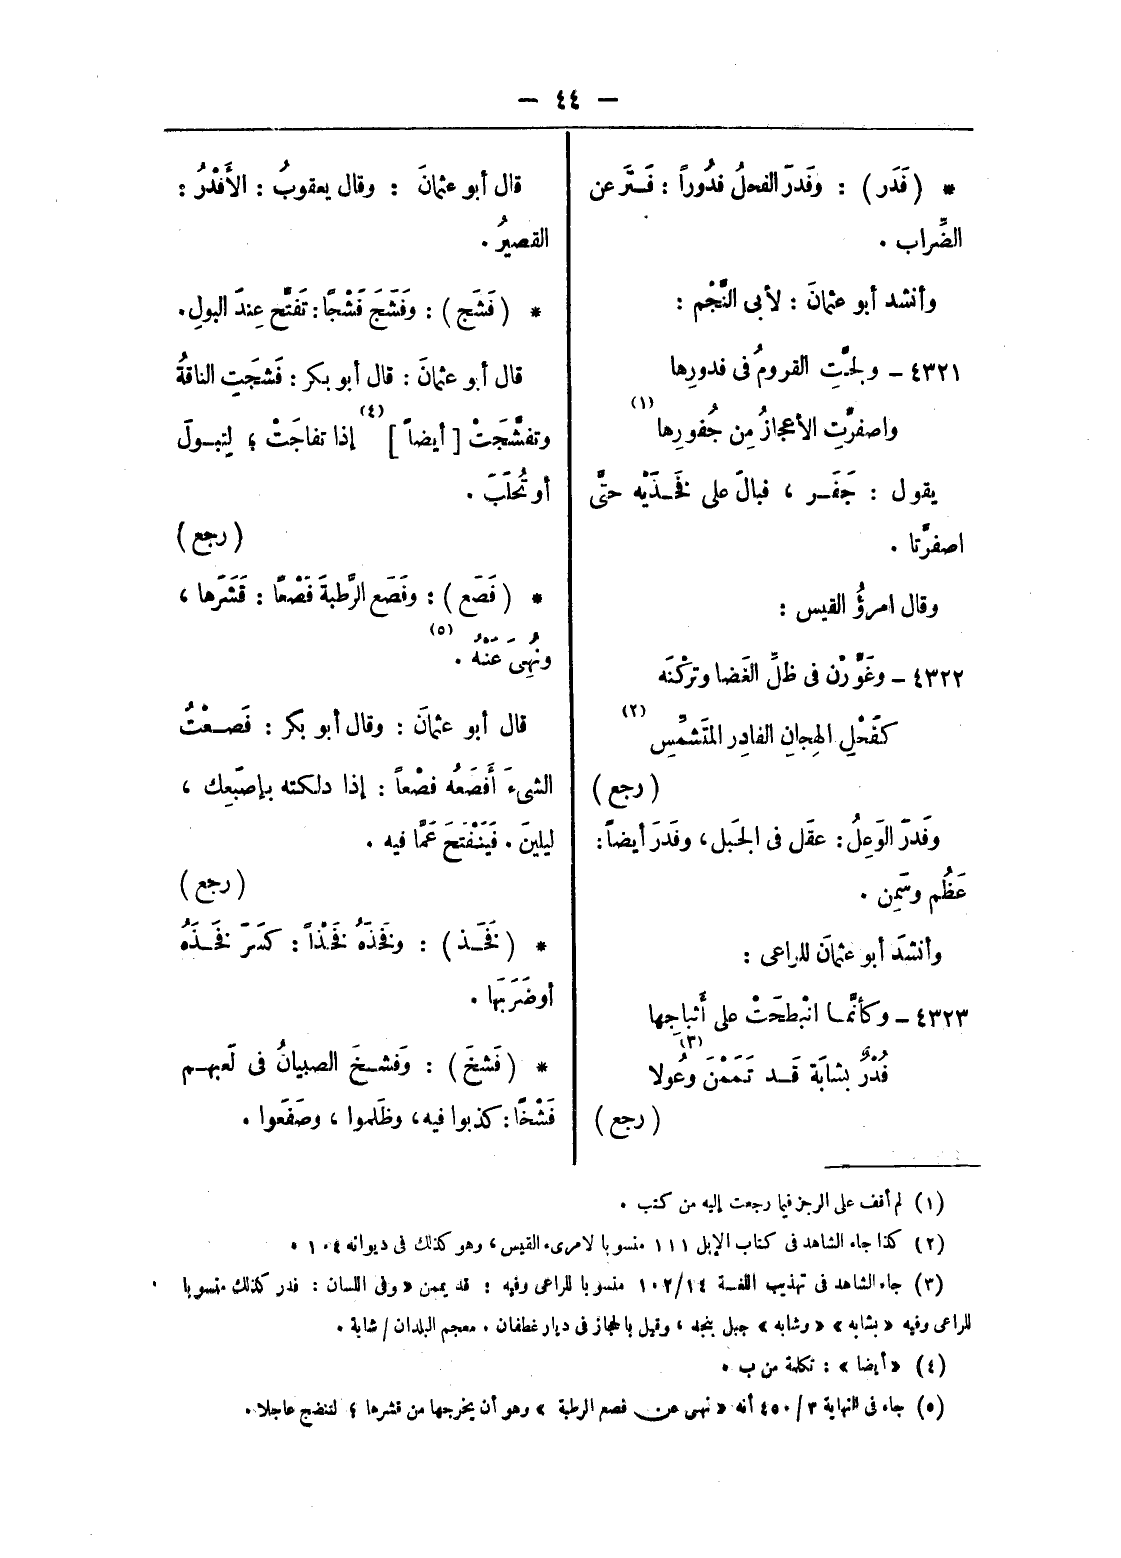 — ٤٤ —
* (فَدَر) : وفَدرَ الفحلُ فدُوراً : فَتَّر عن
الضِّراب .
وأنشد أبو عثمانَ : لأبى النَّجْم :
٤٣٢١ – ولجَّتِ القرومُ فى فدورِها
واصفرَّتِ الأعجازُ مِن جُفورِها (١)
يقول : جَفَـر ، فبالَ على فَخـذَيْه حتَّى
اصفرَّتا .
وقال امرؤُ القيس :
٤٣٢٢ – وغَوَّرْن فى ظلِّ الغَضا وتركْنَه
كفَحْلِ الهِجانِ الفادِر المتَشمِّسِ (٢)
(رجع)
وفَدرَ الوَعِلُ : عقَل فى الجَبل ، وفَدَرَ أيضاً :
عَظُم وسَمِن .
وأنشدَ أبو عثمانَ للراعى :
٤٣٢٣ – وكأنَّمـا انْبطحَتْ على أَثباجِها
فُدْرٌ بشابَة قَـد تَمَمْنَ وعُولا (٣)
(رجع)
قال أبو عثمانَ : وقال يعقوبُ : الأَفْدَرُ :
القصيرُ .
* (فَشَج) : وفَشَجَ فَشْجًا : تَفتَّح عِندَ البولِ .
قال أبو عثمانَ : قال أبو بكر : فَشجَتِ الناقةُ
وتفشَّجَتْ [أيضاً] (٤) إذا تفاجَتْ ؛ لِتبـولَ
أو تُحلَبَ .
(رجع)
* (فَصَع) : وفَصَع الرَّطبةَ فَصْعًا : قَشَرَها ،
ونُهِىَ عَنْهُ (٥) .
قال أبو عثمانَ : وقال أبو بكر : فَصـعْتُ
الشىءَ أَفصَعُه فصْعاً : إذا دلكته بإصبَعِك ،
ليلينَ . فَيَنْفتحَ عَمَّا فيه .
(رجع)
* (فَخَـذ) : وفَخَذَهُ فَخْذاً : كسَرَ فَخـذَهُ
أوضَرَبَها .
* (فَشخَ) : وَفشـخَ الصبيانُ فى لَعبهـم
فَشْخًا : كذبوا فيه ، وظَلموا ، وصَفَعوا .
(١) لم أقف على الرجز فيما رجعت إليه من كتب .
(٢) كذا جاء الشاهد فى كتاب الإبل ١١١ منسوبا لامرىء القيس ، وهو كذلك فى ديوانه ١٠٤ .
(٣) جاء الشاهد فى تهذيب اللغـة ١٠٢/١٤ منسوبا للراعى وفيه : قد يممن « وفى اللسان : فدر كذلك منسوبا
للراعى وفيه « بشابه » « وشابه » جبل بنجد ، وقيل بالحجاز فى ديار غطفان . معجم البلدان / شابة .
(٤) « أيضا » : تكملة من ب .
(٥) جاء فى النهاية ٤٥٠/٣ أنه « نهى عن فصع الرطبة » وهو أن يخرجها من قشرها ؛ لتنضج عاجلا .